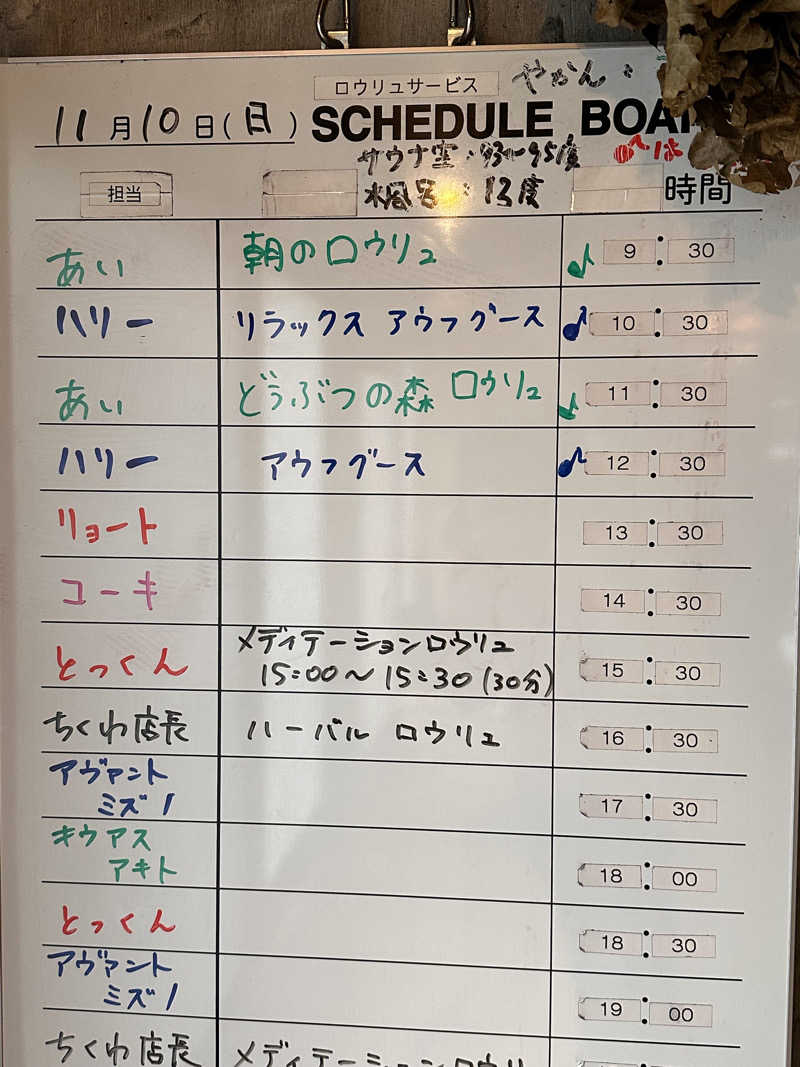 ロウリュサービス やかん:
11月10日(日) SCHEDULE BOA
サウナ室:93~95度
水風呂:13度
担当 時間
あい 朝のロウリュ ♪ 9:30
ハリー リラックス アウフグース ♪ 10:30
あい どうぶつの森 ロウリュ ♪ 11:30
ハリー アウフグース ♪ 12:30
リョート 13:30
コーキ 14:30
とっくん メディテーションロウリュ 15:30
15:00~15:30(30分)
ちくわ店長 ハーバル ロウリュ 16:30
アヴァント 17:30
ミズノ
キウアス 18:00
アキト
とっくん 18:30
アヴァント 19:00
ミズノ
ちくわ店長 メディテーションロウリ